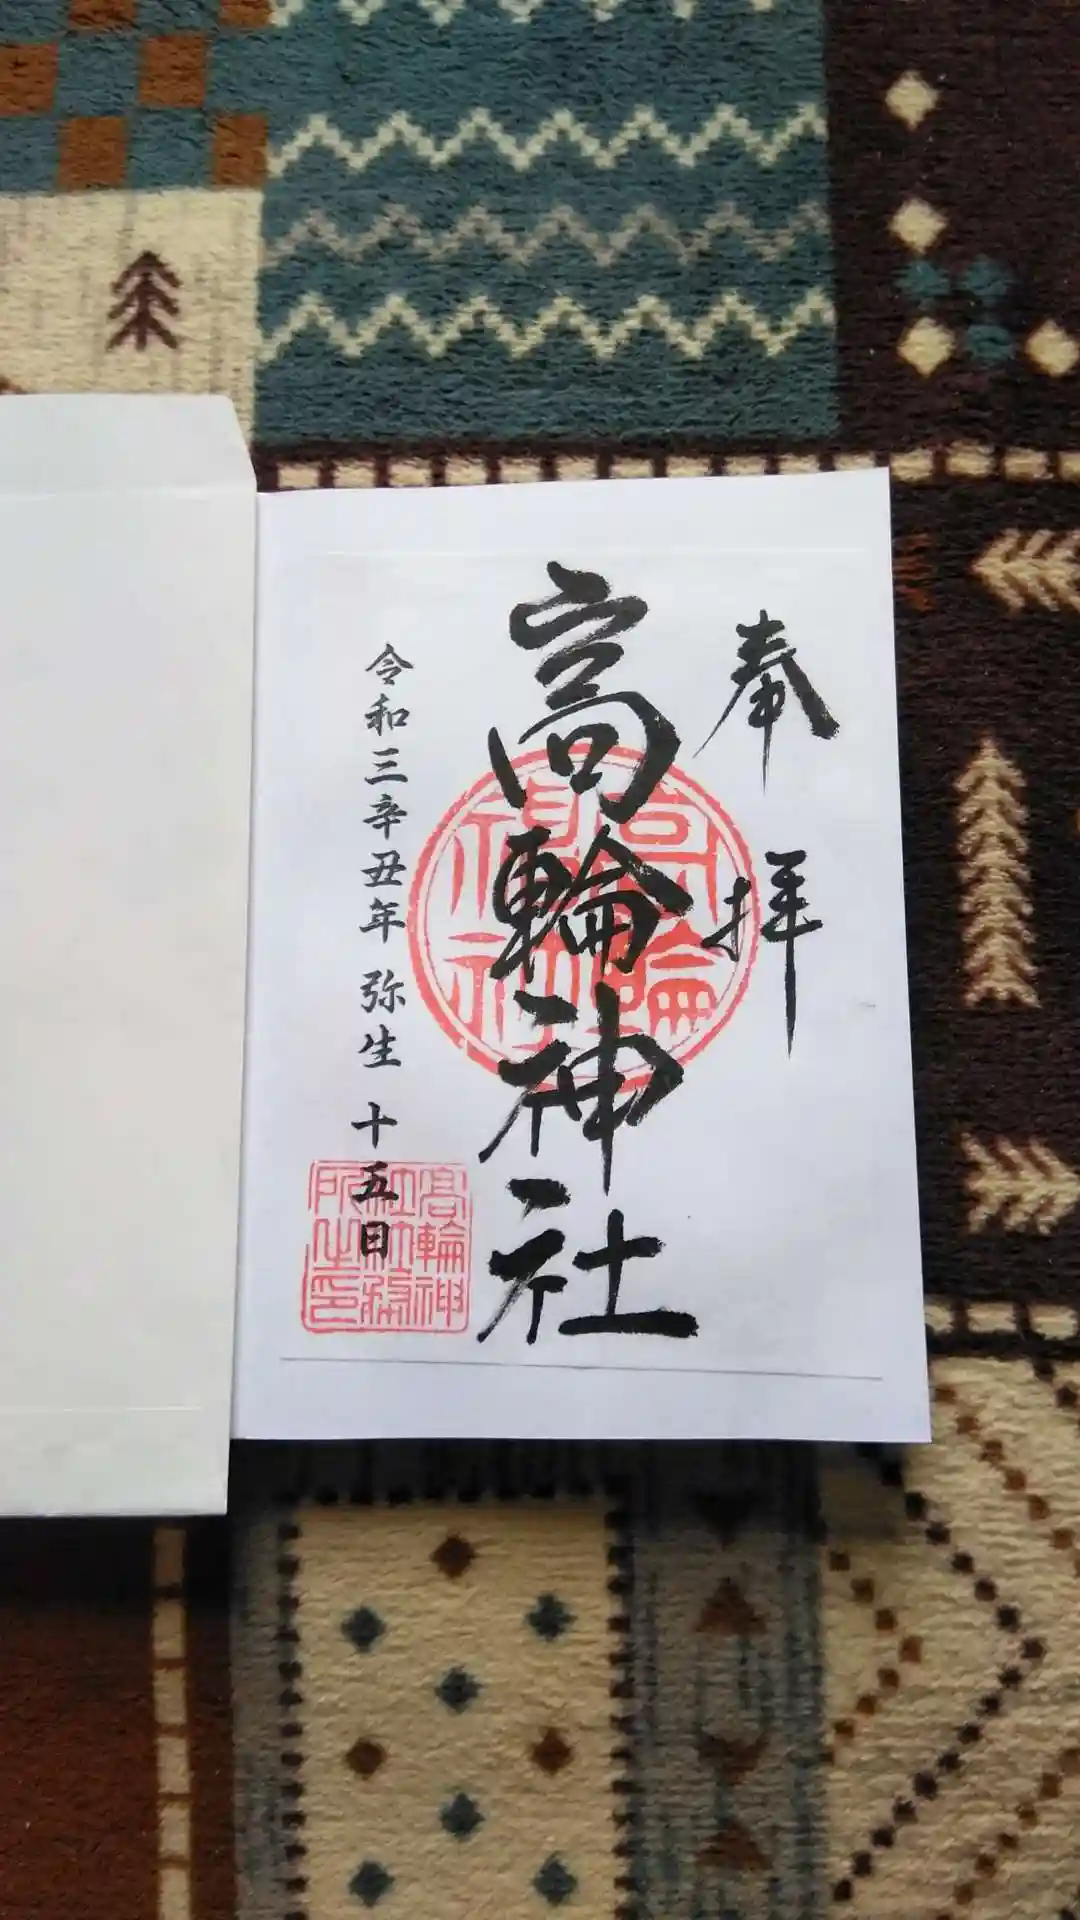 奉拝
高輪神社
令和三辛丑年 弥生 十五日
高輪神社
高輪神
社社務
所之印